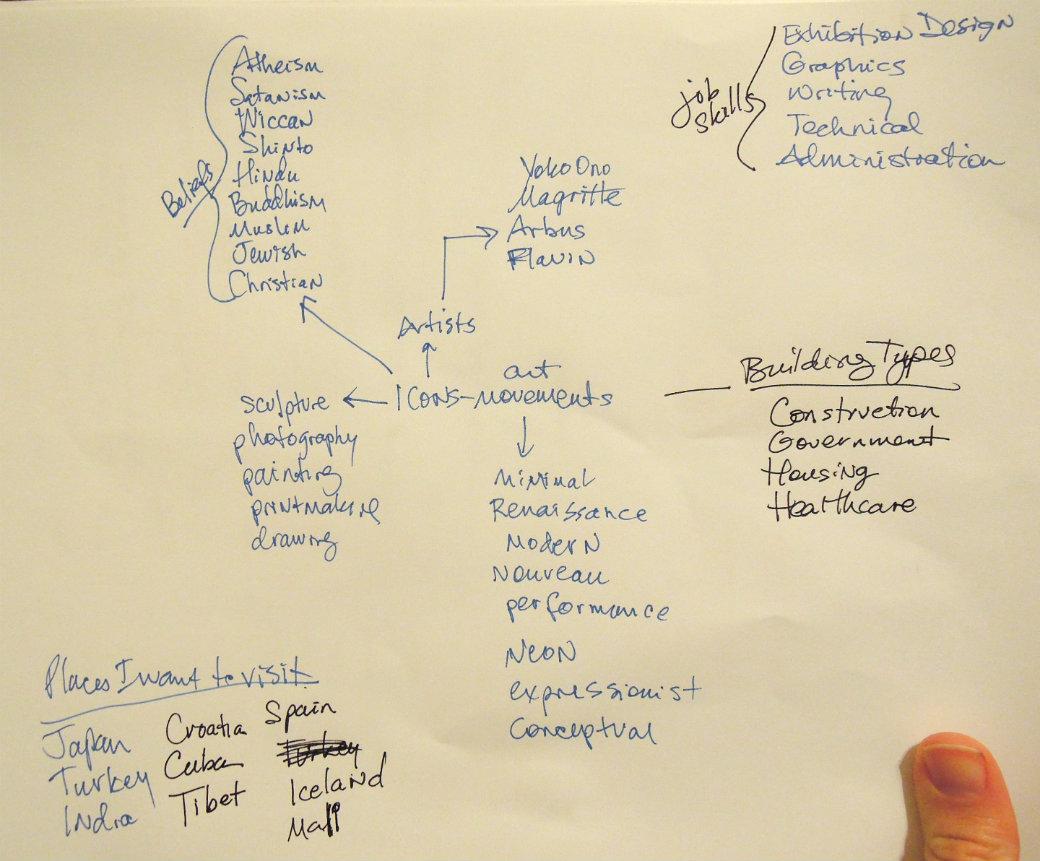 Beliefs
Atheism
Satanism
Wiccan
Shinto
Hindu
Buddhism
Muslim
Jewish
Christian
job
skills
Exhibition Design
Graphics
Writing
Technical
Administration
Yoko Ono
Magritte
Arbus
Flavin
Artists
art
Icons-movements
sculpture
photography
painting
printmaking
drawing
Minimal
Renaissance
Modern
Nouveau
performance
Neon
expressionist
Conceptual
Building Types
Construction
Government
Housing
Healthcare
Places I want to visit
Japan
Turkey
India
Croatia
Cuba
Tibet
Spain
Turkey
Iceland
Mali